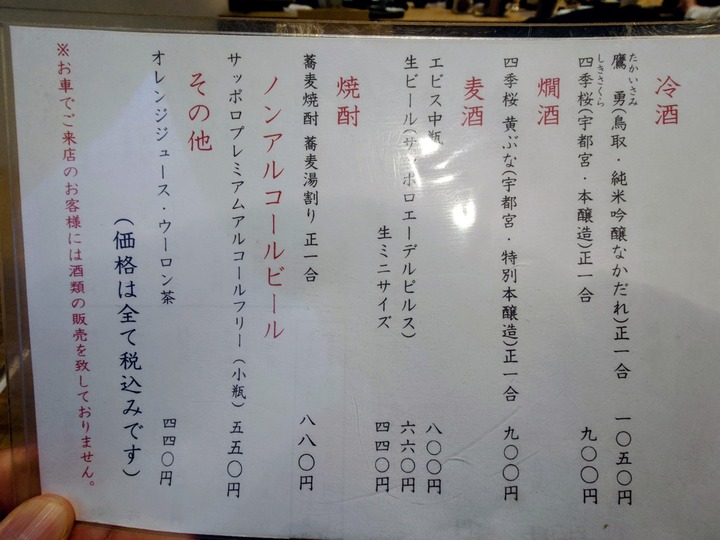 冷酒
鷹勇(鳥取・純米吟醸なかだれ)正一合 一〇五〇円
たかいさみ
四季桜(宇都宮・本醸造)正一合 九〇〇円
しきさくら
燗酒
四季桜 黄ぶな(宇都宮・特別本醸造)正一合 九〇〇円
麦酒
エビス中瓶 八〇〇円
生ビール(サッポロエーデルピルス) 六六〇円
生ミニサイズ 四四〇円
焼酎
蕎麦焼酎 蕎麦湯割り 正一合 八八〇円
ノンアルコールビール
サッポロプレミアムアルコールフリー(小瓶) 五五〇円
その他
オレンジジュース・ウーロン茶 四四〇円
(価格は全て税込みです)
※お車でご来店のお客様には酒類の販売を致しておりません。